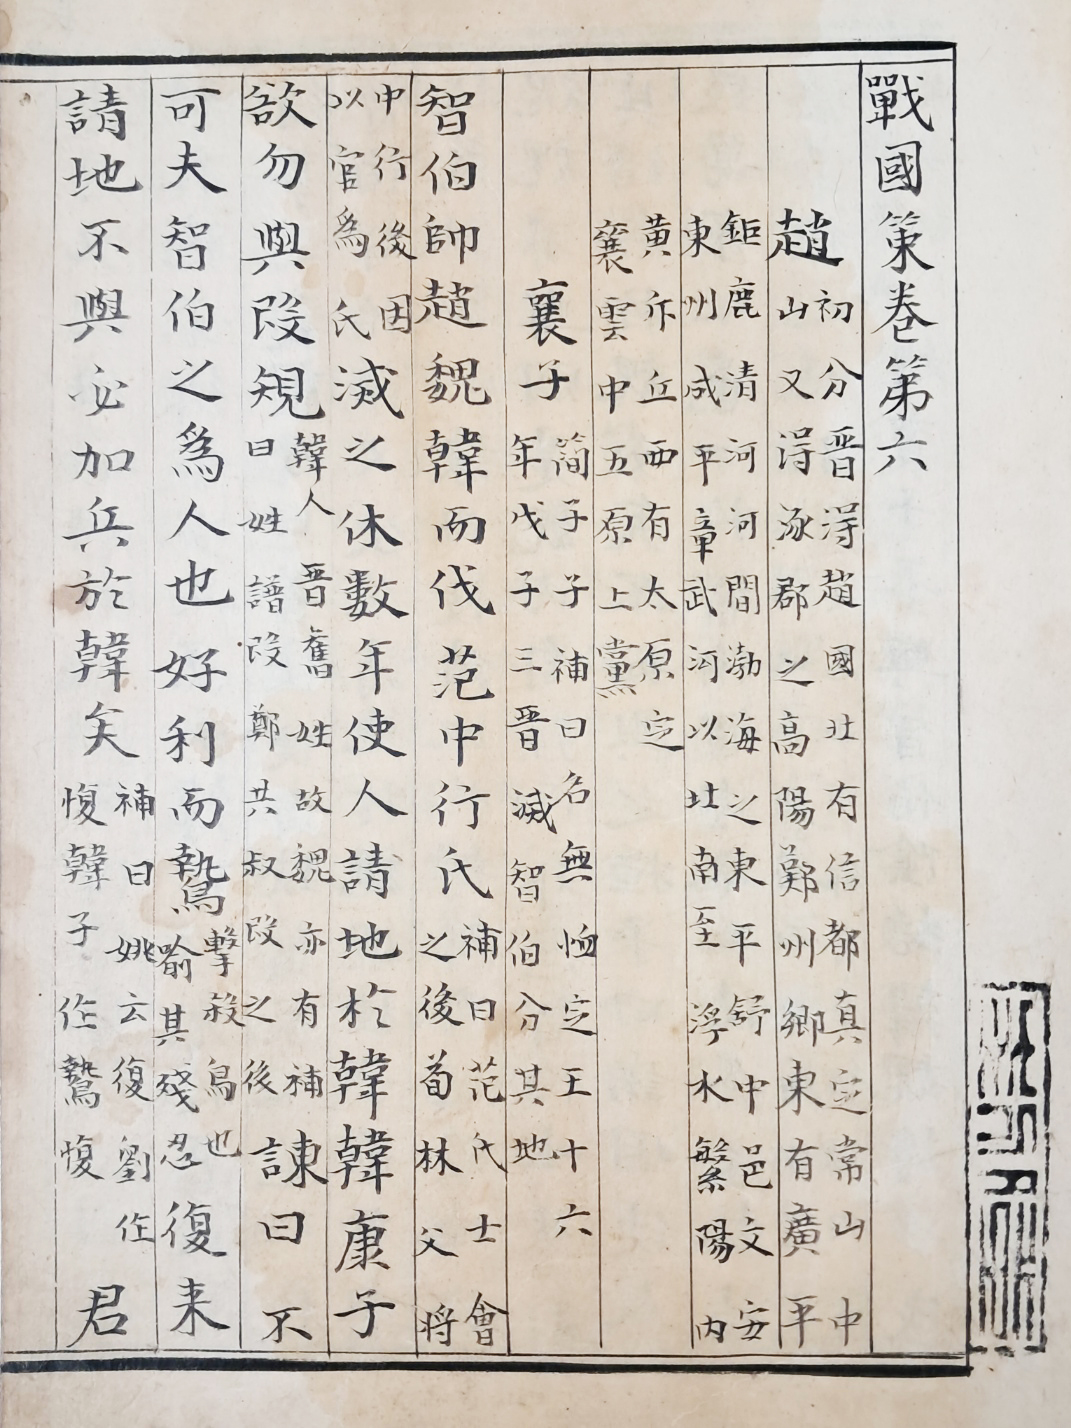 戰國策卷第六
趙 初分晋淂趙國北有信都真㝎常山中
山又淂涿郡之高陽鄚州鄉東有廣平
鉅鹿清河河間渤海之東平舒中邑文安
東州成平章武河以北南至浮水繁陽內
黃斥丘西有太原㝎
襄雲中五原上黨
襄子 簡子子補曰名無恤㝎王十六
年戊子三晋滅智伯分其地
智伯帥趙魏韓而伐范中行氏 補曰范氏士會
之後荀林父將
中行後因
以官爲氏 滅之休數年使人請地於韓韓康子
欲勿與段規 韓人晋舊姓故魏亦有補
曰姓譜段鄭共叔段之後 諫曰不
可夫智伯之爲人也好利而鷙 擊殺鳥也
喻其殘忍 復来
請地不與必加兵於韓矣 補曰姚云復劉作
愎韓子作鷙愎 君